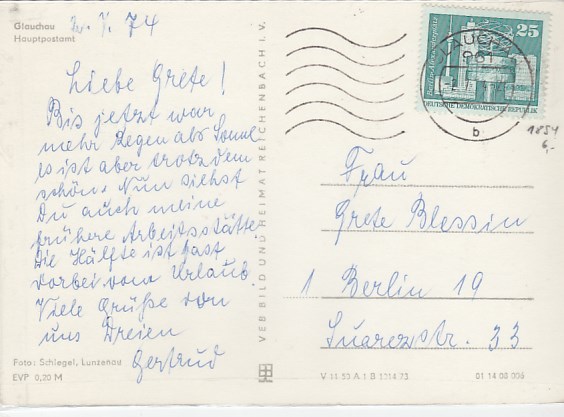 Glauchau
Hauptpostamt
74
Liebe Grete!
Bis jetzt war
mehr Regen als Sonne,
es ist aber trotzdem
schön. Nun siehst
Du auch meine
frühere Arbeitsstätte.
Die Hälfte ist fast
vorbei vom Urlaub.
Viele Grüße von
uns Dreien
Gertrud
Foto: Schlegel, Lunzenau
EVP 0,20 M
VEB BILD UND HEIMAT REICHENBACH I. V.
25
DEUTSCHE DEMOKRATISCHE REPUBLIK
GLAUCHAU
961
b
1854
6,-
Frau
Grete Blessin
1 Berlin 19
Suarezstr. 33
V 11 53 A 1 B 1214 73
01 14 08 006